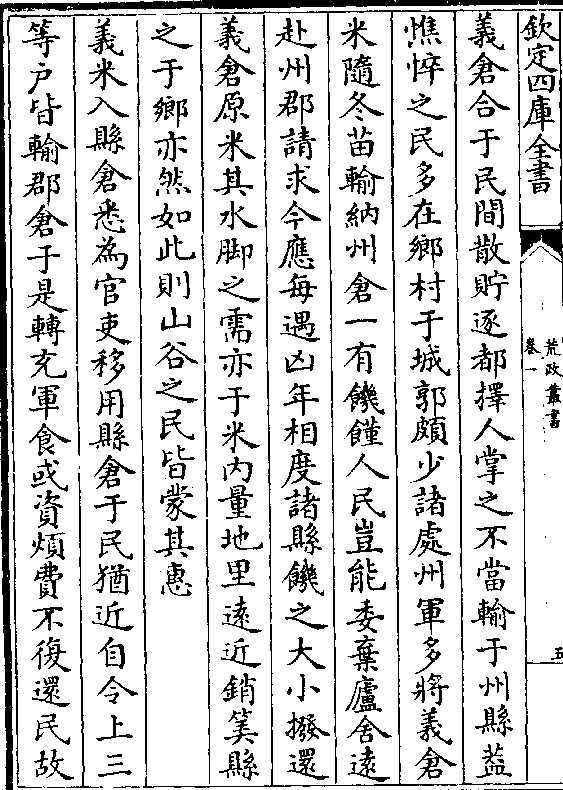 欽定四庫全書
荒政叢書
卷一
五
義倉合于民間散貯逐都擇人掌之不當輸于州縣葢
憔悴之民多在鄉村于城郭頗少諸處州軍多將義倉
米隨冬苗輸納州倉一有饑饉人民豈能委棄廬舍遠
赴州郡請求今應每遇凶年相度諸縣饑之大小撥還
義倉原米其水脚之需亦于米内量地里遠近銷筭縣
之于鄉亦然如此則山谷之民皆蒙其惠
義米入縣倉悉為官吏移用縣倉于民猶近自令上三
等户皆輸郡倉于是轉充軍食或資煩費不復還民故